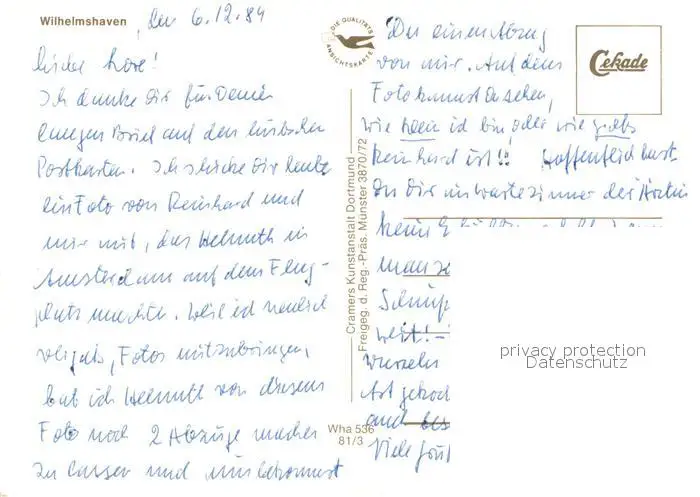 Wilhelmshaven, den 6.12.84
Liebe Lore!
Ich danke Dir für Deinen
langen Brief auf den hübschen
Postkarten. Ich schicke Dir heute
ein Foto von Reinhard und
mir mit, das Helmuth in
Amsterdam auf dem Flug-
platz machte. Weil ich neulich
vergaß, Fotos mitzubringen,
bat ich Helmuth von diesem
Foto noch 2 Abzüge machen
zu lassen und nun bekommst
Du einen Abzug
von mir. Auf dem
Foto kannst Du sehen,
wie klein ich bin, oder wie groß
Reinhard ist!! Hoffentlich hast
Du Dir im Wartezimmer der Ärztin
keine
man
weit! –
Art
und
Viele
DIE QUALITÄTS
ANSICHTSKARTE
Cekade
Cramers Kunstanstalt Dortmund
Freigeg. d. Reg.-Präs. Münster 3870/72
Wha 536
81/3
privacy protection
Datenschutz